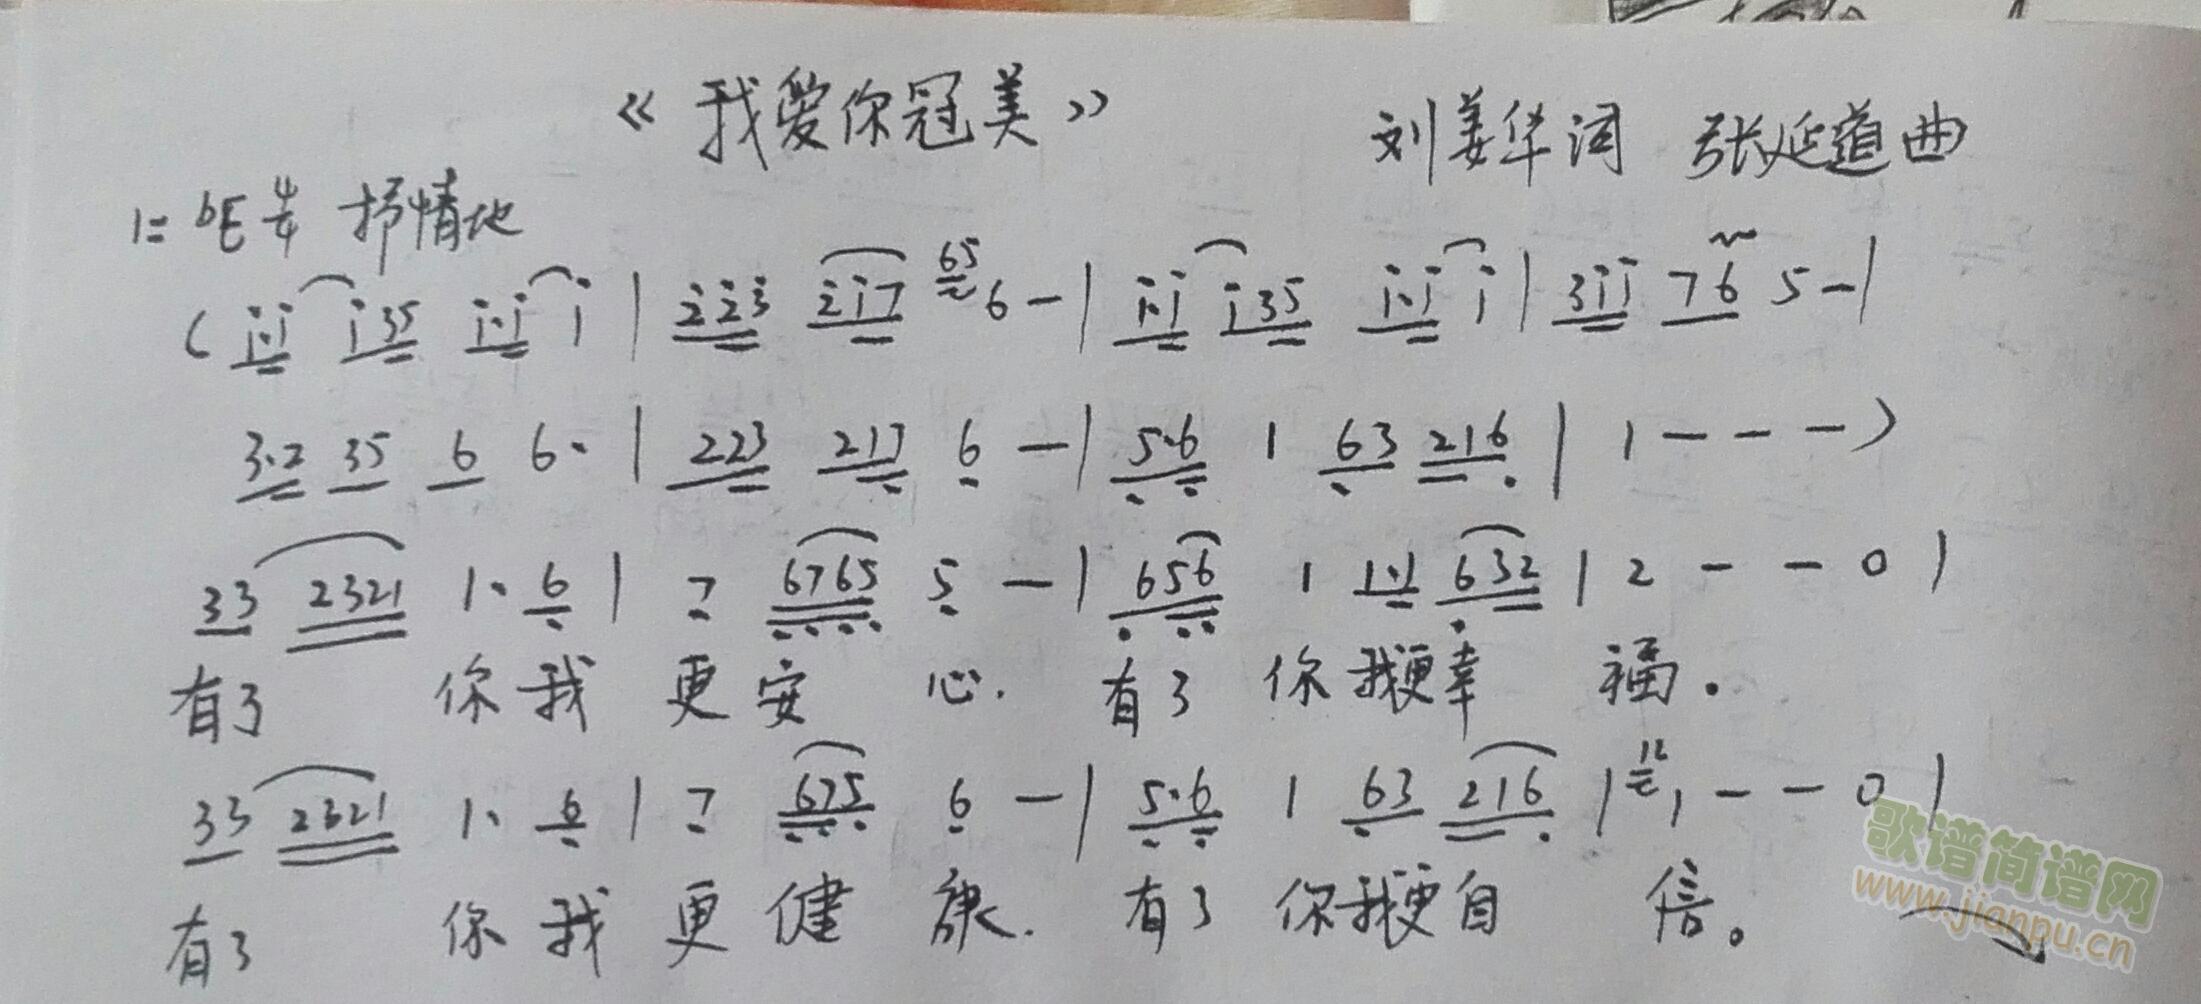 《我爱你冠美》
刘姜华词 张延道曲
1=bE 4/4 抒情地
(i·i i35 i·i i | 223 217 65 6 - | i·i i35 i·i i | 3ii 76 5 - |
3·2 35 6 6· | 223 217 6 - | 5·6 1 63 216 | 1 - - - )
33 2321 1· 6 | 7 6765 5 - | 656 1 1·1 632 | 2 - - 0 |
有了 你我 更安 心. 有了 你我更幸 福.
33 2321 1· 6 | 7 675 6 - | 5·6 1 63 216 | 12 1 - - 0 |
有了 你我 更健 康. 有了 你我更自 信。
歌谱简谱网
www.jianpu.cn